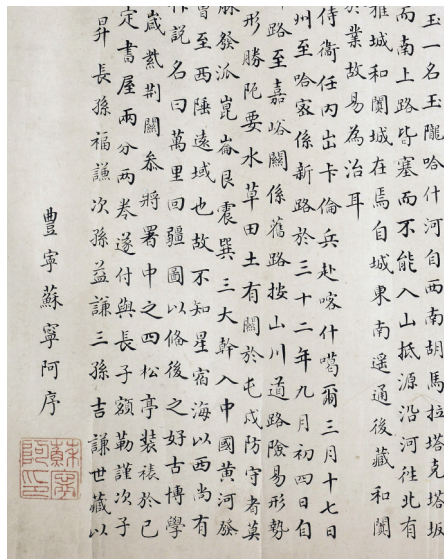 玉一名玉隴哈什河自西南胡馬拉塔克塔坂
而南上路皆塞而不能入山抵源沿河徃北有
雅城和闐城在焉自城東南遥通後藏和闐
於業故易為治耳
侍衞任内出卡倫兵赴喀什噶爾三月十七日
州至哈宻係新路於三十二年九月初四日自
路至嘉峪關係舊路按山川道路險易形勢
形勝阨要水草田土有關於屯戍防守者莫
脉發派崑崙艮震巽三大幹入中國黄河發
曾至西陲遠域也故不知星宿海以西尚有
作説名曰萬里回疆圖以俻後之好古博學
嵗紫荆關叅將署中之四松亭裝裱於已
定書屋兩分两卷遂付與長子額勒謹次子
昇長孫福謙次孫益謙三孫吉謙世藏以
豐寧蘇寧阿序
蘇寧阿印